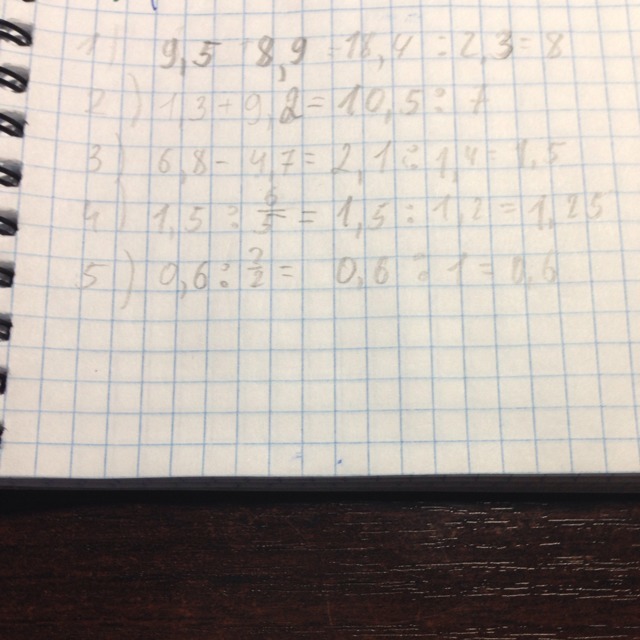 1) 9,5 + 8,9 = 18,4 : 2,3 = 8
2) 1,3 + 9,2 = 10,5 : 7
3) 6,8 - 4,7 = 2,1 : 1,4 = 1,5
4) 1,5 : 6/5 = 1,5 : 1,2 = 1,25
5) 0,6 : 2/2 = 0,6 : 1 = 0,6